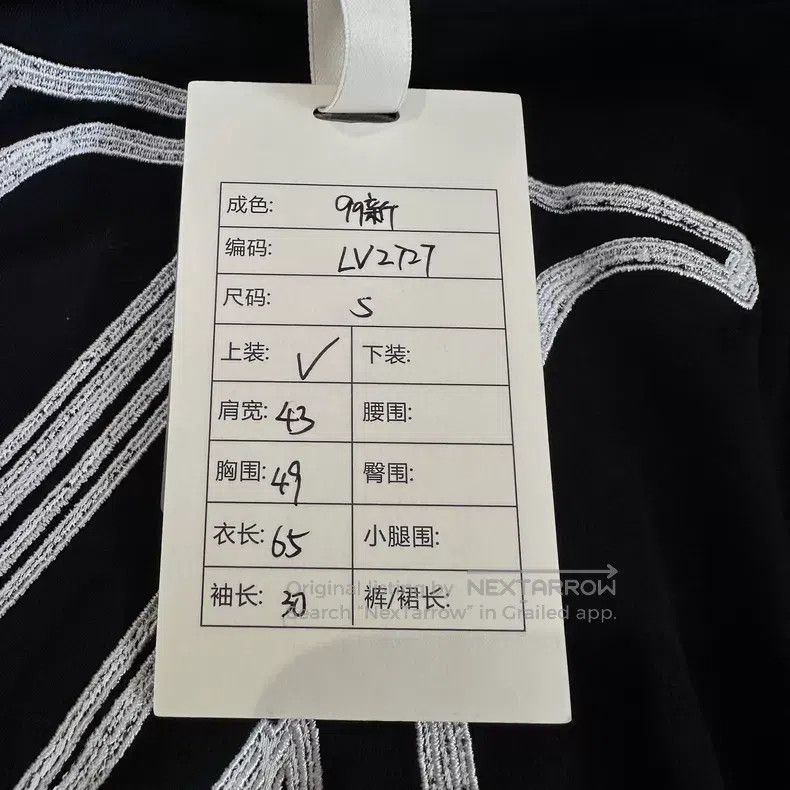 成色: 99新
编码: LV2727
尺码: S
上装: ✓ 下装:
肩宽: 43 腰围:
胸围: 49 臀围:
衣长: 65 小腿围:
袖长: 30 裤/裙长:
Original listing by NEXTARROW
Search "NexTarrow" in Grailed app.